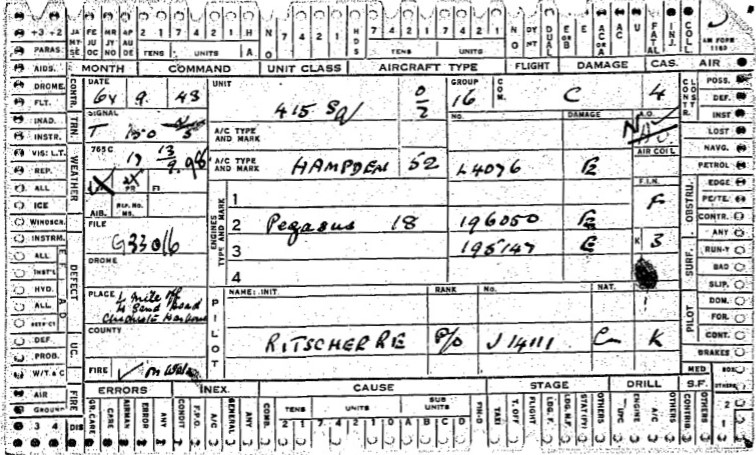 +3 +2 JA FE MR AP 2 1 7 4 2 1 H N 7 4 2 1 HDS 7 4 2 1 7 4 2 1 N DY DUAL E or B E AC or A AC U FATAL INJ. COLL AM FORM 1180
PARAS. TENS UNITS A. O TENS UNITS O NT
AIDS. MONTH COMMAND UNIT CLASS AIRCRAFT TYPE FLIGHT DAMAGE CAS. AIR
DROME. CONTR. DATE UNIT GROUP COM. CONSTR. POSS.
FLT. 6x 9. 43 415 Sq 0/2 16 C 4 DEF.
INAD. TRN. SIGNAL A/C TYPE AND MARK NO. DAMAGE A.O. INST
INSTR. T 150 LOST
VIS: L.T. WEATHER 765C AIR COLL NAVG.
REP. 17 13/9. A/C TYPE AND MARK HAMPDEN 52 L4076 E PETROL
ALL PR FI F.I.N. OBSTRU. EDGE
ICE AIB. REP. NO. MS. ENGINES TYPE AND MARK 1 F PE/TE.
WINDSCN. FILE 2 Pegasus 18 196050 E CONTR.
INSTRM. DEFECT G33016 3 195147 E K 3 ANY
ALL SURF. RUN-Y
INST'L DROME 4 BAD
HYD. PLACE NAME: INIT RANK No. NAT. SLIP.
ALL. 4 mile off PILOT DOM.
W Sand Head
Chichester Harbour
COUNTY RITSCHER RE P/O J 14111 Can K FOR.
DEF. UC. CONT.
PROB. BRAKES
W/T & C FIRE in Water MED.
AIR FIRE ERRORS INEX. CAUSE STAGE DRILL S.F. OTHERS
GROUND GR. CARE CARE AIRMAN ERROR ANY CONDIT F.P.O. A/C GENERAL ANY COMB. TENS UNITS SUB UNITS PH-D TAXI T. OFF FLIGHT LDG. F. LDG. M.F. STAT (PY) OTHERS UPC ENGINE A/C OTHERS CONTRIB. OTHERS 2
3 4 DIS 2 1 7 4 2 1 0 A B C D 1